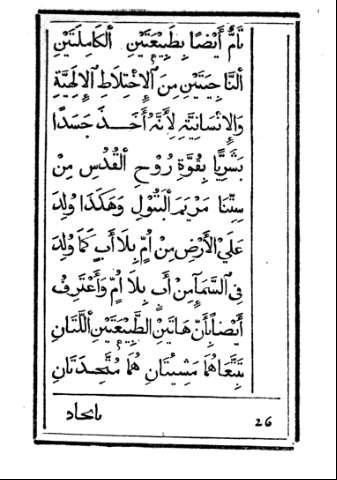 تَامٌّ أَيْضًا بِطَبِيعَتَيْنِ ٱلْكَامِلَتَيْنِ
ٱلنَّاجِيَتَيْنِ مِنَ ٱلْإِخْتِلَاطِ ٱلْإِلٰهِيَّةِ
وَٱلْإِنْسَانِيَّةِ لِأَنَّهُ أَخَذَ جَسَدًا
بَشَرِيًّا بِقُوَّةِ رُوْحِ ٱلْقُدُسِ مِنْ
سِتِّنَا مَرْيَمَ ٱلْبَتُوْلِ وَهٰكَذَا وُلِدَ
عَلَيْ ٱلْأَرْضِ مِنْ اُمٍّ بِلَا أَبٍ كَمَا وُلِدَ
فِي ٱلسَّمَآءِ مِنْ أَبٍ بِلَا اُمٍّ وَأَعْتَرِفُ
أَيْضًا بِأَنَّ هَاتَيْنِ ٱلطَّبِيْعَتَيْنِ ٱللَّتَانِ
تَتْبَعَاهُمَا مَشِيْئَتَانِ هُمَا مُتَّحِدَتَانِ
باتحاد
26